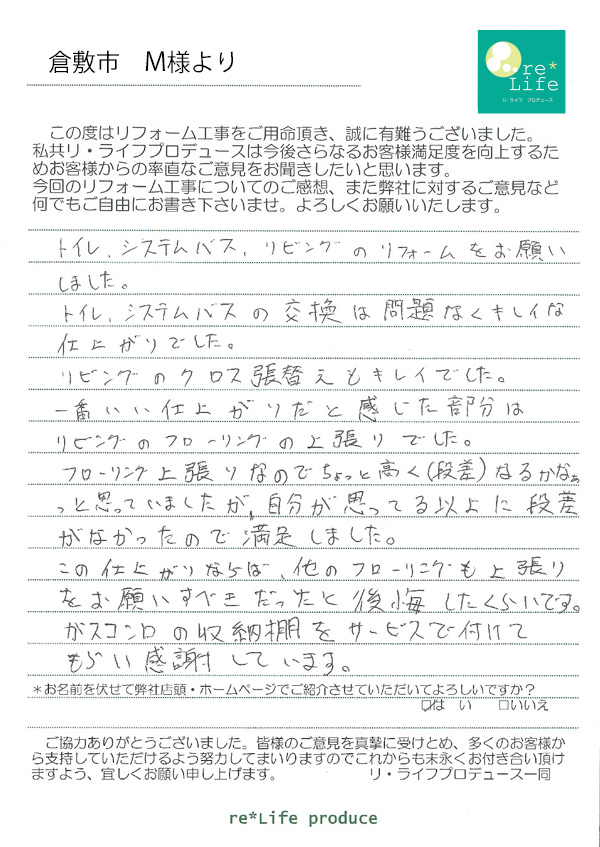 倉敷市　M様より
re*
Life
リ・ライフ　プロデュース
この度はリフォーム工事をご用命頂き、誠に有難うございました。
私共リ・ライフプロデュースは今後さらなるお客様満足度を向上するた
めお客様からの率直なご意見をお聞きしたいと思います。
今回のリフォーム工事についてのご感想、また弊社に対するご意見など
何でもご自由にお書き下さいませ。よろしくお願いいたします。
トイレ、システムバス、リビングのリフォームをお願い
しました。
トイレ、システムバスの交換は問題なくキレイな
仕上がりでした。
リビングのクロス張替えもキレイでした。
一番いい仕上がりだと感じた部分は
リビングのフローリングの上張りでした。
フローリング上張りなのでちょっと高く(段差)なるかなぁ
っと思っていましたが、自分が思ってる以上に段差
がなかったので満足しました。
この仕上がりならば、他のフローリングも上張り
をお願いすべきだったと後悔したくらいです。
ガスコンロの収納棚をサービスで付けて
もらい感謝しています。
*お名前を伏せて弊社店頭・ホームページでご紹介させていただいてよろしいですか？
☑はい　□いいえ
ご協力ありがとうございました。皆様のご意見を真摯に受けとめ、多くのお客様か
ら支持していただけるよう努力してまいりますのでこれからも末永くお付き合い頂け
ますよう、宜しくお願い申し上げます。　リ・ライフプロデュース一同
re*Life produce